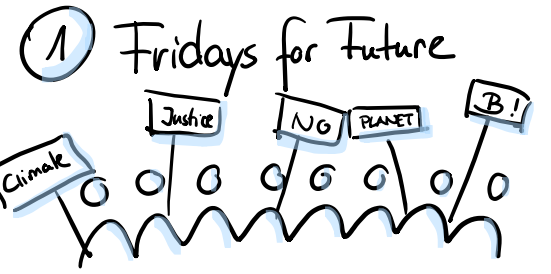 1 Fridays for Future
Climate
Justice
NO
PLANET
B!